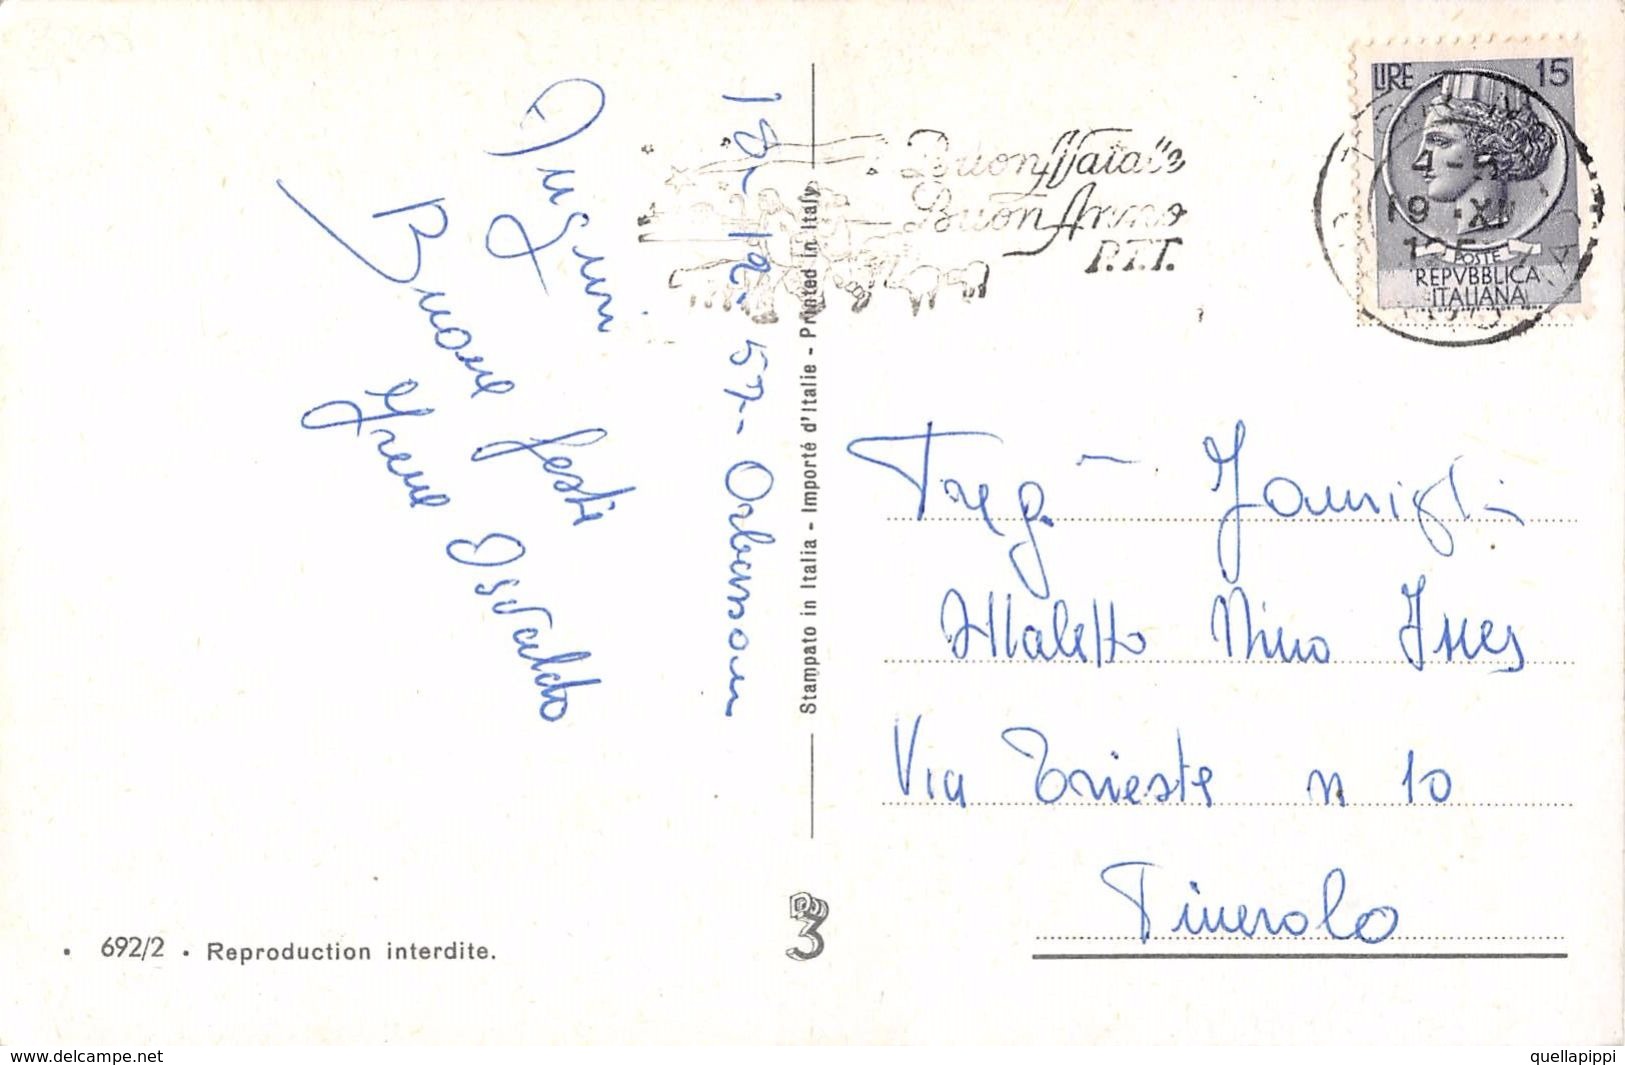 18-12-57- Orbassano
Auguri
Buone feste
Irene Osvaldo
Stampato in Italia - Importé d'Italie - Printed in Italy
Buon Natale
Buon Anno
P.T.T.
LIRE 15
4-5
19 XII
195
POSTE
REPVBBLICA
ITALIANA
Preg. Famiglia
Maletto Nino Ines
Via Trieste n 10
Pinerolo
692/2 • Reproduction interdite.
www.delcampe.net
quellapippi